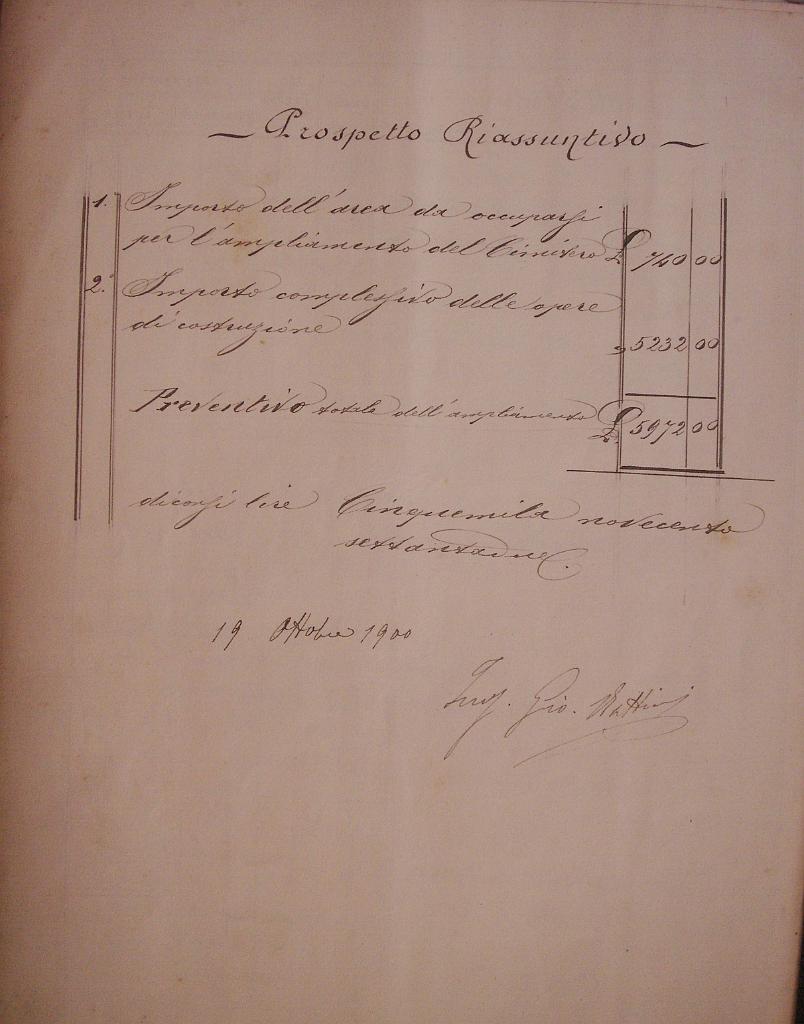 Prospetto Riassuntivo
1.° Importo dell'area da occuparsi
per l'ampliamento del Cimitero £ 740 00
2.° Importo complessivo delle opere
di costruzione " 5232 00
Preventivo totale dell'ampliamento £ 5972 00
diconsi lire Cinquemila novecento
settantadue
19 Ottobre 1900
Ing. Gio.